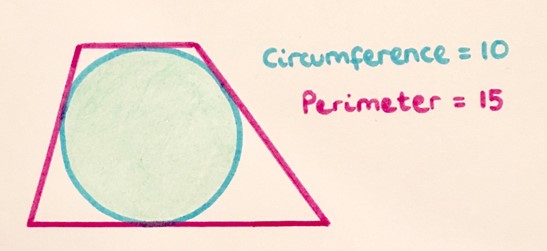 Circumference = 10
Perimeter = 15